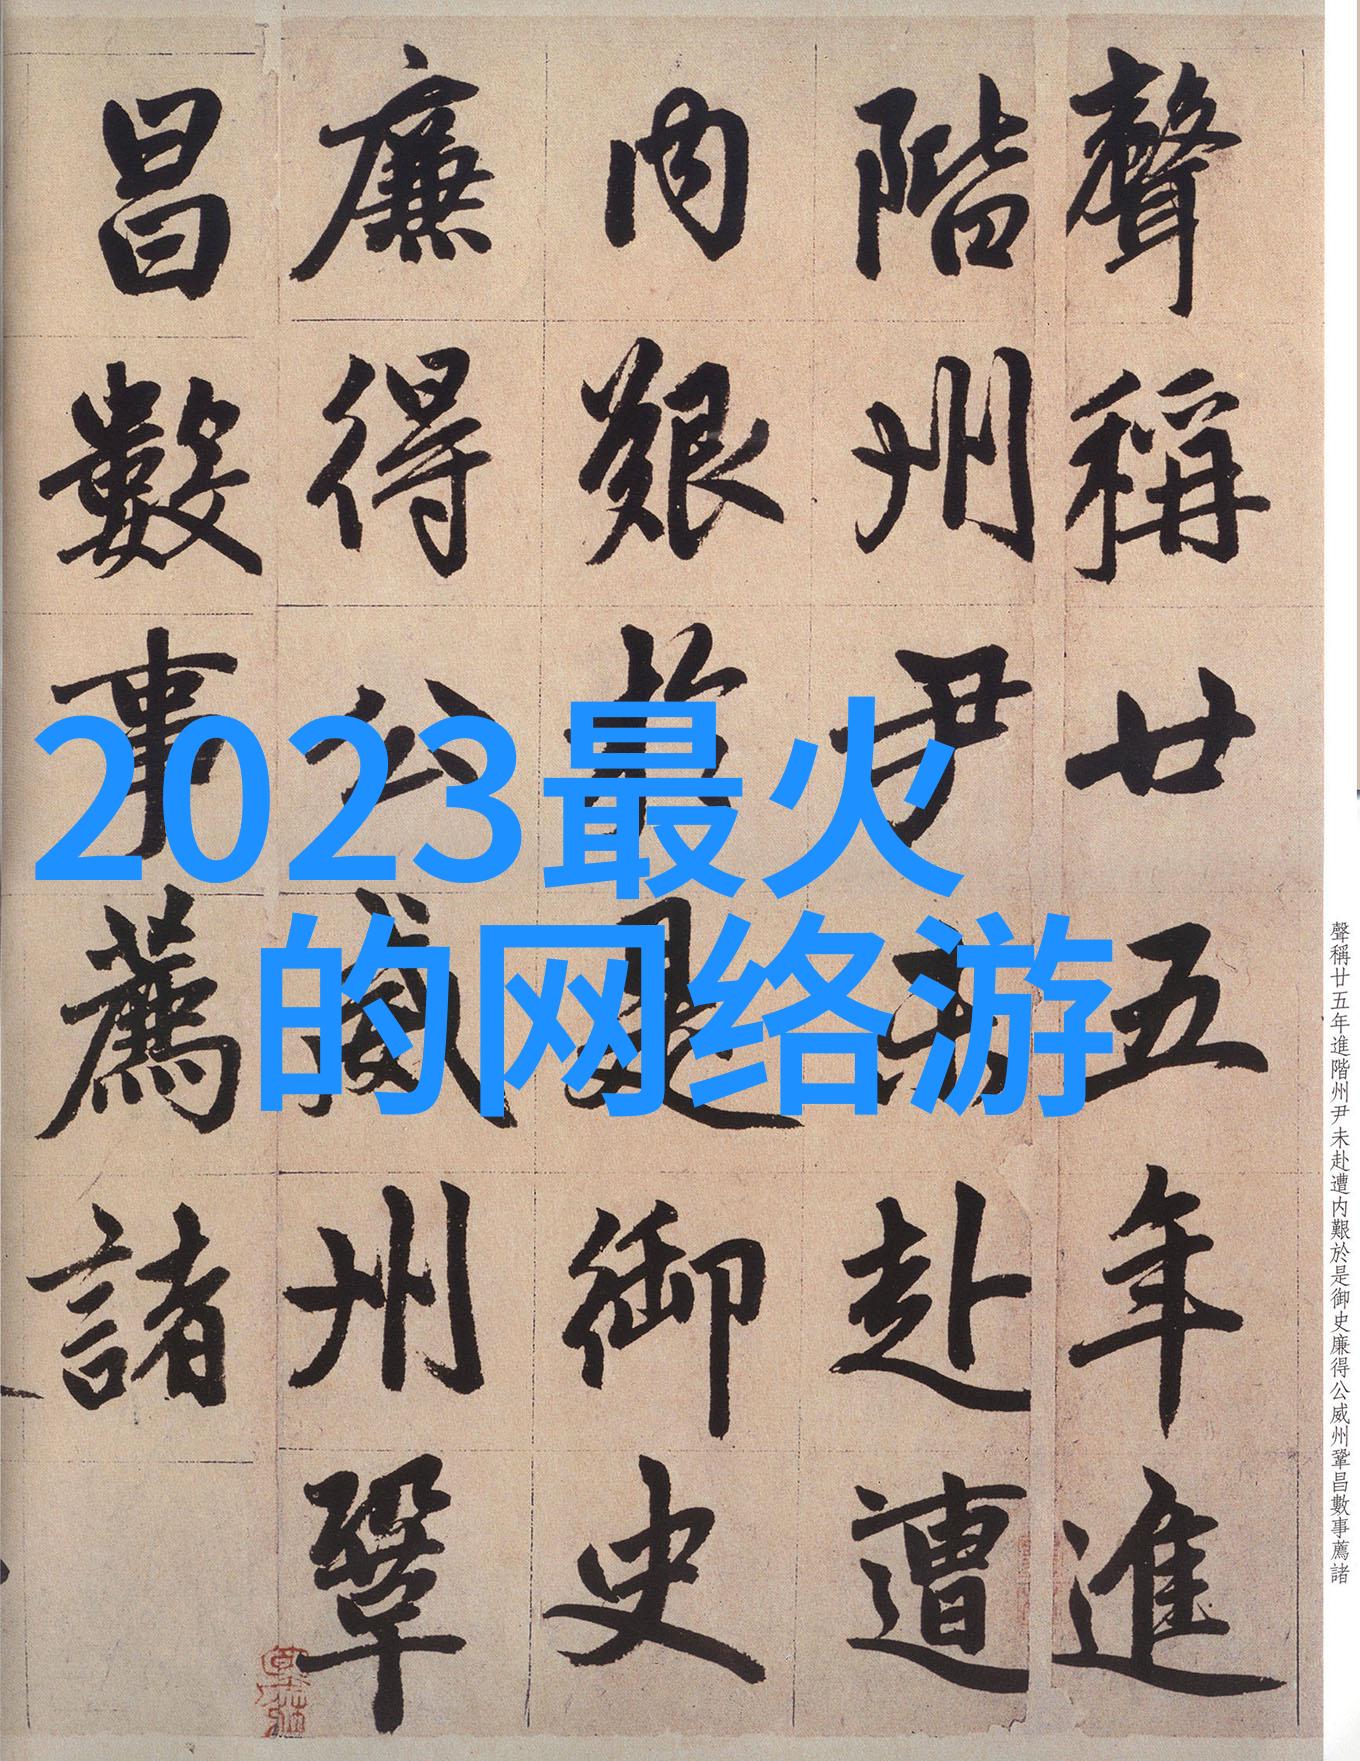 聲稱廿五年進
階州尹未赴遭
内艱於是御史
廉得公威州鞏
昌數事薦諸
2023最火
的网络游
聲稱廿五年進階州尹未赴遭内艱於是御史廉得公威州鞏昌數事薦諸